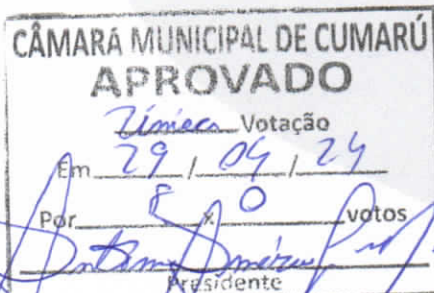 CÂMARA MUNICIPAL DE CUMARÚ
APROVADO
Única Votação
Em 29 / 04 / 24
Por 8 x 0 votos
Presidente